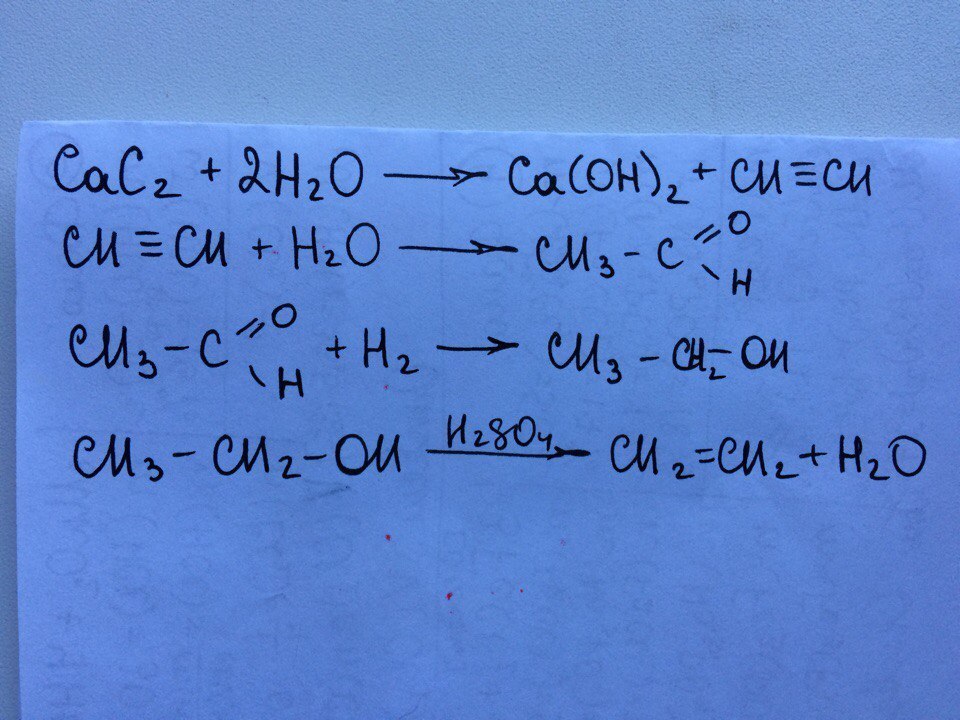 CaC₂ + 2H₂O → Ca(OH)₂ + CH≡CH
CH≡CH + H₂O → CH₃-C(=O)\H
CH₃-C(=O)\H + H₂ → CH₃-CH₂-OH
CH₃-CH₂-OH —H₂SO₄→ CH₂=CH₂ + H₂O